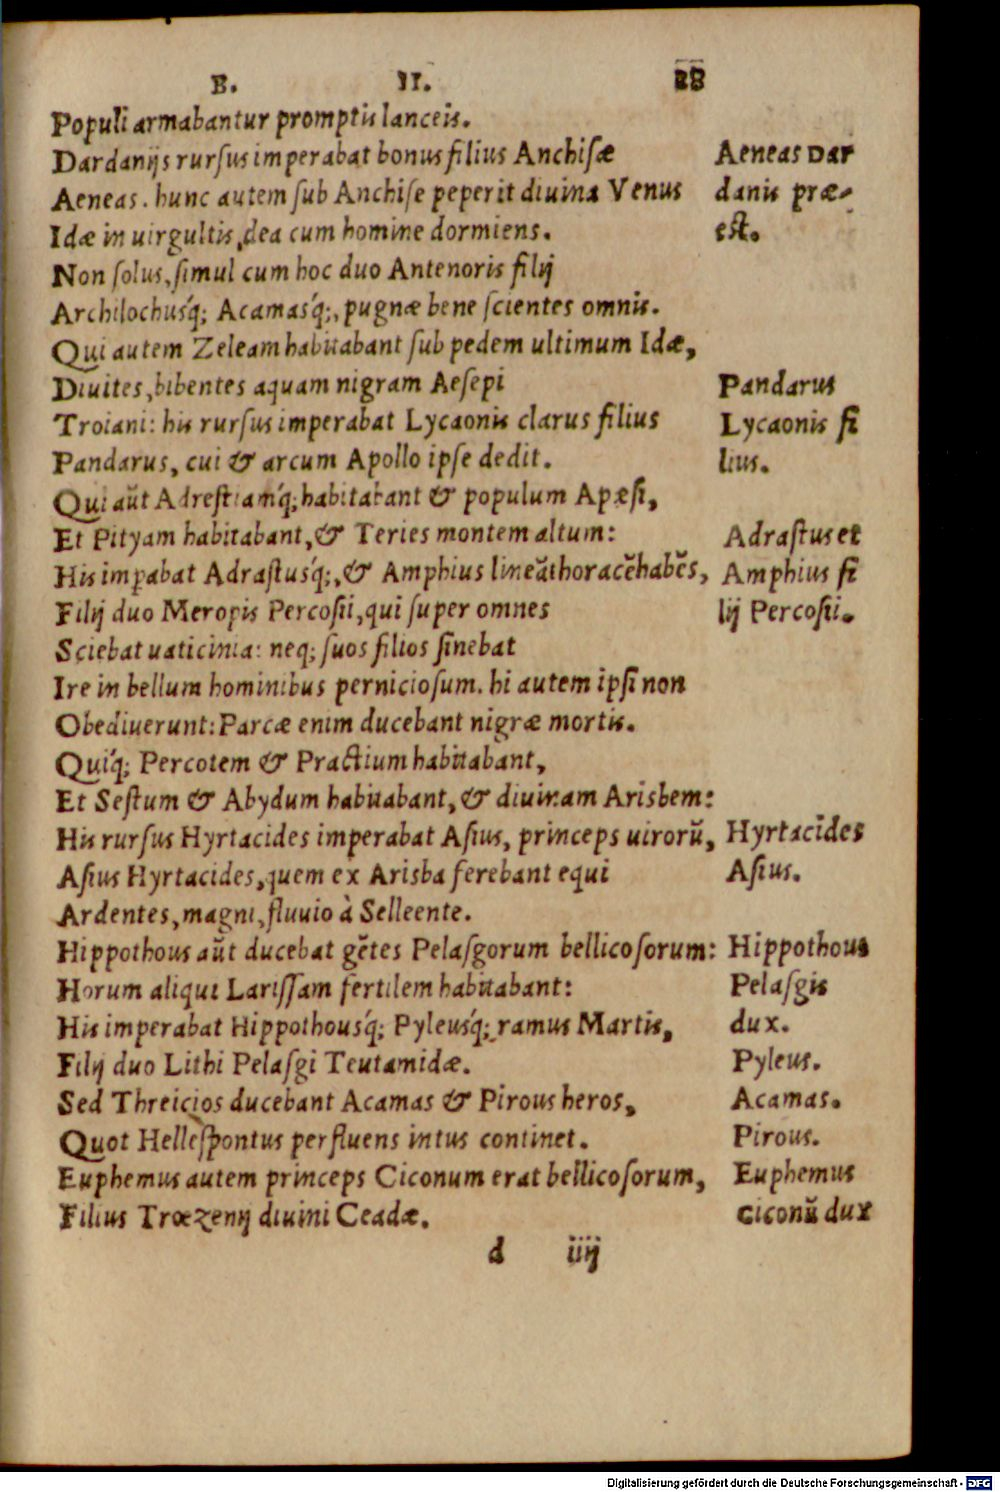 B. II. 28
Populi armabantur promptis lanceis.
Dardanijs rursus imperabat bonus filius Anchisæ
Aeneas Dar
Aeneas. hunc autem sub Anchise peperit diuina Venus
danis præ-
Idæ in uirgultis, dea cum homine dormiens.
est.
Non solus, simul cum hoc duo Antenoris filij
Archilochusq́; Acamasq́;, pugnæ bene scientes omnis.
Qui autem Zeleam habitabant sub pedem ultimum Idæ,
Diuites, bibentes aquam nigram Aesepi
Pandarus
Troiani: his rursus imperabat Lycaonis clarus filius
Lycaonis fi
Pandarus, cui & arcum Apollo ipse dedit.
lius.
Qui aūt Adrestiamq́; habitabant & populum Apæsi,
Et Pityam habitabant, & Teries montem altum:
Adrastus et
His imꝑabat Adrastusq́;, & Amphius lineū thoracē habēs,
Amphius fi
Filij duo Meropis Percosii, qui super omnes
lij Percosii.
Sciebat uaticinia: neq; suos filios sinebat
Ire in bellum hominibus perniciosum. hi autem ipsi non
Obediuerunt: Parcæ enim ducebant nigræ mortis.
Quiq́; Percotem & Practium habitabant,
Et Sestum & Abydum habitabant, & diuinam Arisbem:
His rursus Hyrtacides imperabat Asius, princeps uirorū,
Hyrtacides
Asius Hyrtacides, quem ex Arisba ferebant equi
Asius.
Ardentes, magni, fluuio à Selleente.
Hippothous aūt ducebat gētes Pelasgorum bellicosorum:
Hippothous
Horum aliqui Larissam fertilem habitabant:
Pelasgis
His imperabat Hippothousq́; Pyleusq́; ramus Martis,
dux.
Filij duo Lithi Pelasgi Teutamidæ.
Pyleus.
Sed Threicios ducebant Acamas & Pirous heros,
Acamas.
Quot Hellespontus perfluens intus continet.
Pirous.
Euphemus autem princeps Ciconum erat bellicosorum,
Euphemus
Filius Trœzenij diuini Ceadæ.
ciconū dux
d iiij
Digitalisierung gefördert durch die Deutsche Forschungsgemeinschaft - DFG